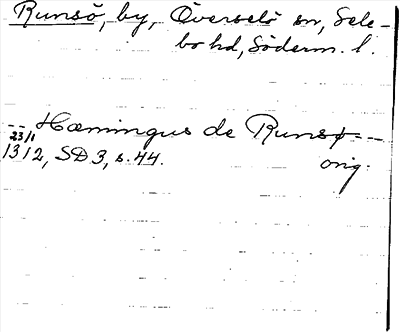 Runsö, by, Överselö sn, Sele-
bo hd, Söderm. l.
-- Hæmingus de Runsø --
23/1
1312, SD 3, s. 44. orig.